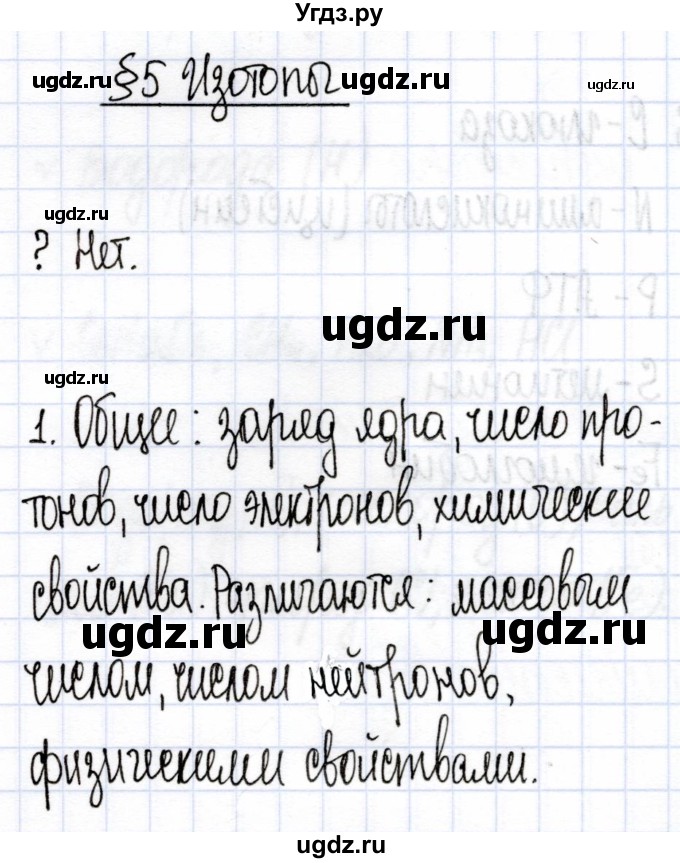 Угдз.ру
ugdz.ru § 5 Изотопы ugdz.ru ugdz.ru
ugdz.ru
? Нет.
ugdz.ru
ugdz.ru
1. Общее: заряд ядра, число про-
тонов, число электронов, химические
свойства. Различаются: массовым
ugdz.ru ugdz.ru
числом, числом нейтронов,
физическими свойствами.
ugdz.ru